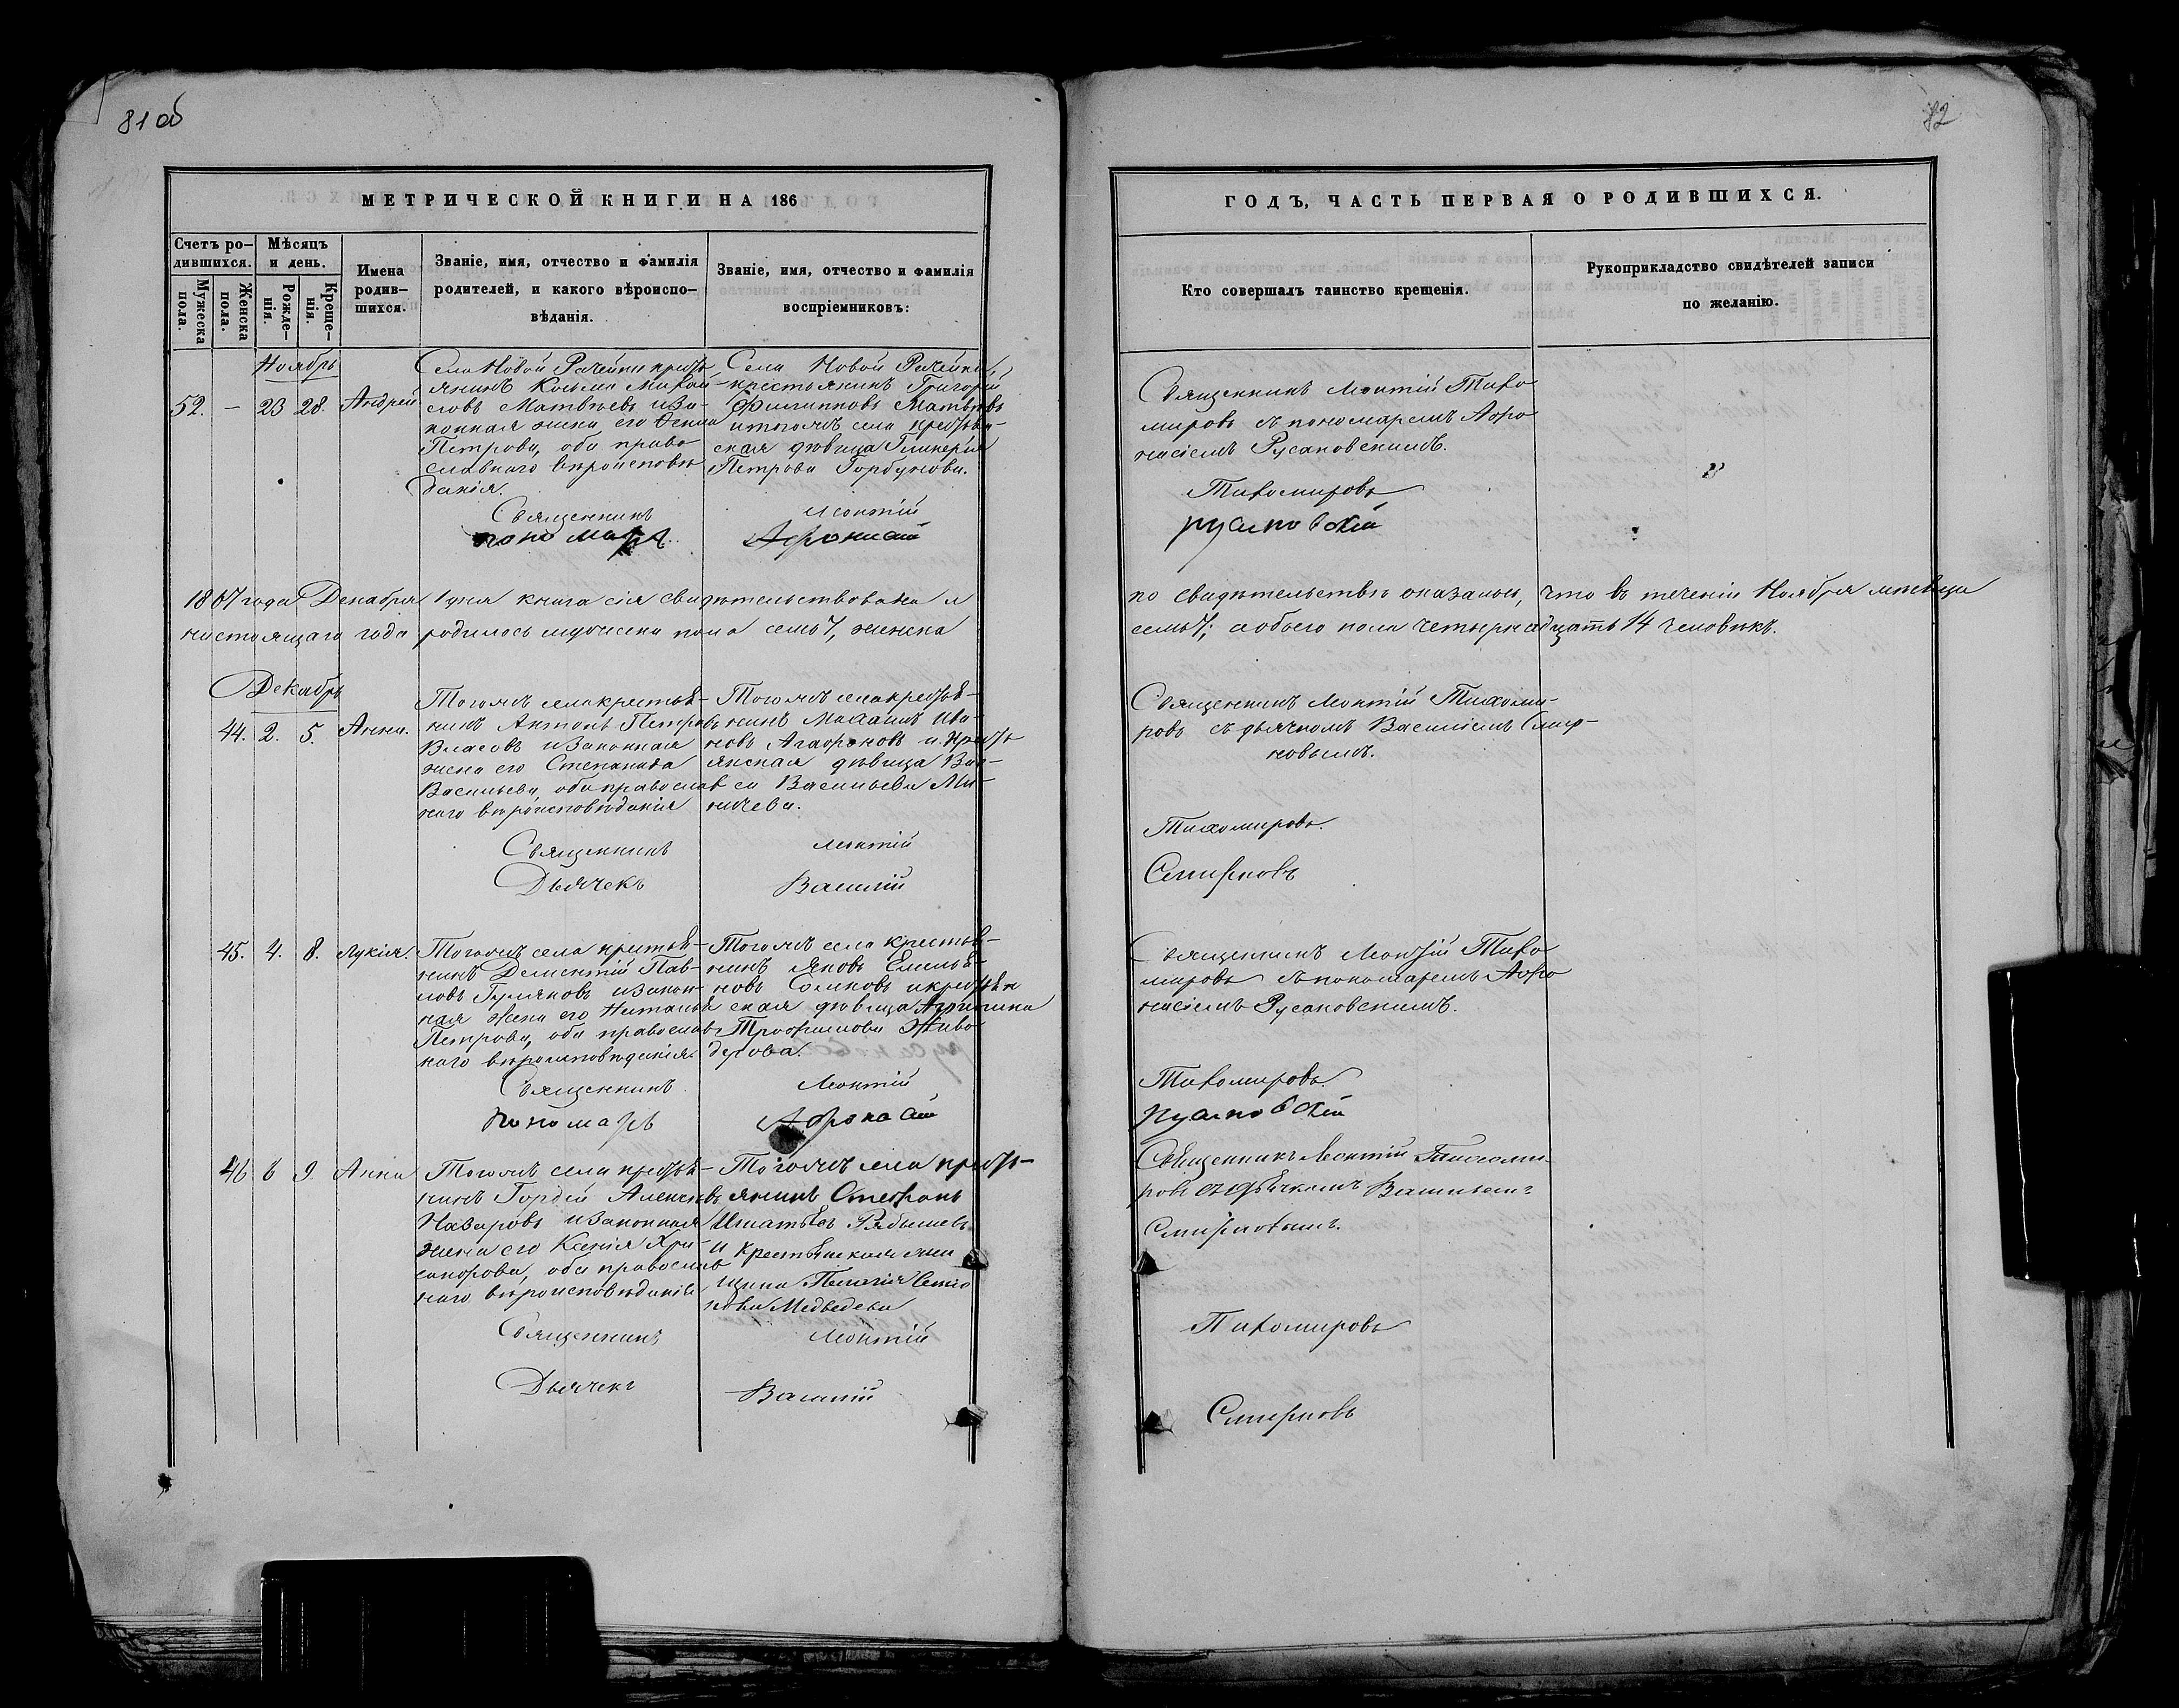 81 об
МЕТРИЧЕСКОЙ КНИГИ НА 186
Счетъ ро-
дившихся.
Мужеска
пола.
Женска
пола.
Мѣсяцъ
и день.
Рожде-
нія.
Креще-
нія.
Имена
родив-
шихся.
Званіе, имя, отчество и фамилія
родителей, и какого вѣроиспо-
вѣданія.
Званіе, имя, отчество и фамилія
воспріемниковъ:
Ноябрь
52. - 23 28. Андрей
Села Новой Рачейки кресть
янинъ Косьма Михай-
ловъ Матвѣевъ и за-
конная жена его
Петрова, оба право
славнаго вѣроисповѣ
данія.
Села Новой Рачейки,
крестьянинъ Григорій
Филипповъ Матвѣевъ
и тогожъ села крестьян-
ская дѣвица Гликерія
Петрова Горбунова.
Священникъ Леонтій
пономарь Афонасій
1867 года Декабря 1 дня книга сія свидѣтельствована и
настоящаго года родилось мужеска пола семь 7, женска
Декабрь
44. 2. 5. Анна.
Тогожъ села крестья-
нинъ Антонъ Петровъ
Власовъ и законная
жена его Степанида
Васильева, оба православ
наго вѣроисповѣданія
Тогожъ села крестья-
нинъ Махаилъ Ива-
новъ Агафоновъ и кресть
янская дѣвица Вас-
са Васильева Ми-
ничева.
Священникъ Леонтій
Дьячекъ Василій
45. 4. 8. Лукія.
Тогожъ села крестья-
нинъ Дементій Пав-
ловъ Гуляковъ и закон-
ная жена его Наталья
Петрова, оба православ
наго вѣроисповѣданія.
Тогожъ села крестья-
нинъ Яковъ Емелья-
новъ и крестьян
ская дѣвица Агрипина
Трофимова Живо
дерова.
Священникъ Леонтій
Пономарь Афонасій
46 6 9. Анна
Тогожъ села крестья-
нинъ Гордей Алексѣевъ
Назаровъ и законная
жена его Ксенія Хри-
санфова, оба православ
наго вѣроисповѣданія
Тогожъ села кресть-
янинъ Стефанъ
Игнатьевъ Рябышевъ
и крестьянская жен
щина Пелагія Семіо
нова Медведева
Священникъ Леонтій
Дьячекъ Василій
82
ГОДЪ, ЧАСТЬ ПЕРВАЯ О РОДИВШИХСЯ.
Кто совершалъ таинство крещенія.
Рукоприкладство свидѣтелей записи
по желанію.
Священникъ Леонтій Тихо
мировъ съ пономаремъ Афо
насіемъ Русановскимъ.
Тихомировъ
русановскій
по свидѣтельству оказалось, что въ теченіи Ноября мѣсяца
семь 7, а обоего пола четырнадцать 14 человѣкъ.
Священникъ Леонтій Тихоми-
ровъ съ дьячкомъ Василіемъ Смир-
новымъ.
Тихомировъ.
Смирновъ
Священникъ Леонтій Тихо
мировъ съ пономаремъ Афо
насіемъ Русановскимъ.
Тихомировъ.
русановскій
Священникъ Леонтій Тихоми-
ровъ съ дьячкомъ Васильемъ
Смирновымъ.
Тихомировъ
Смирновъ